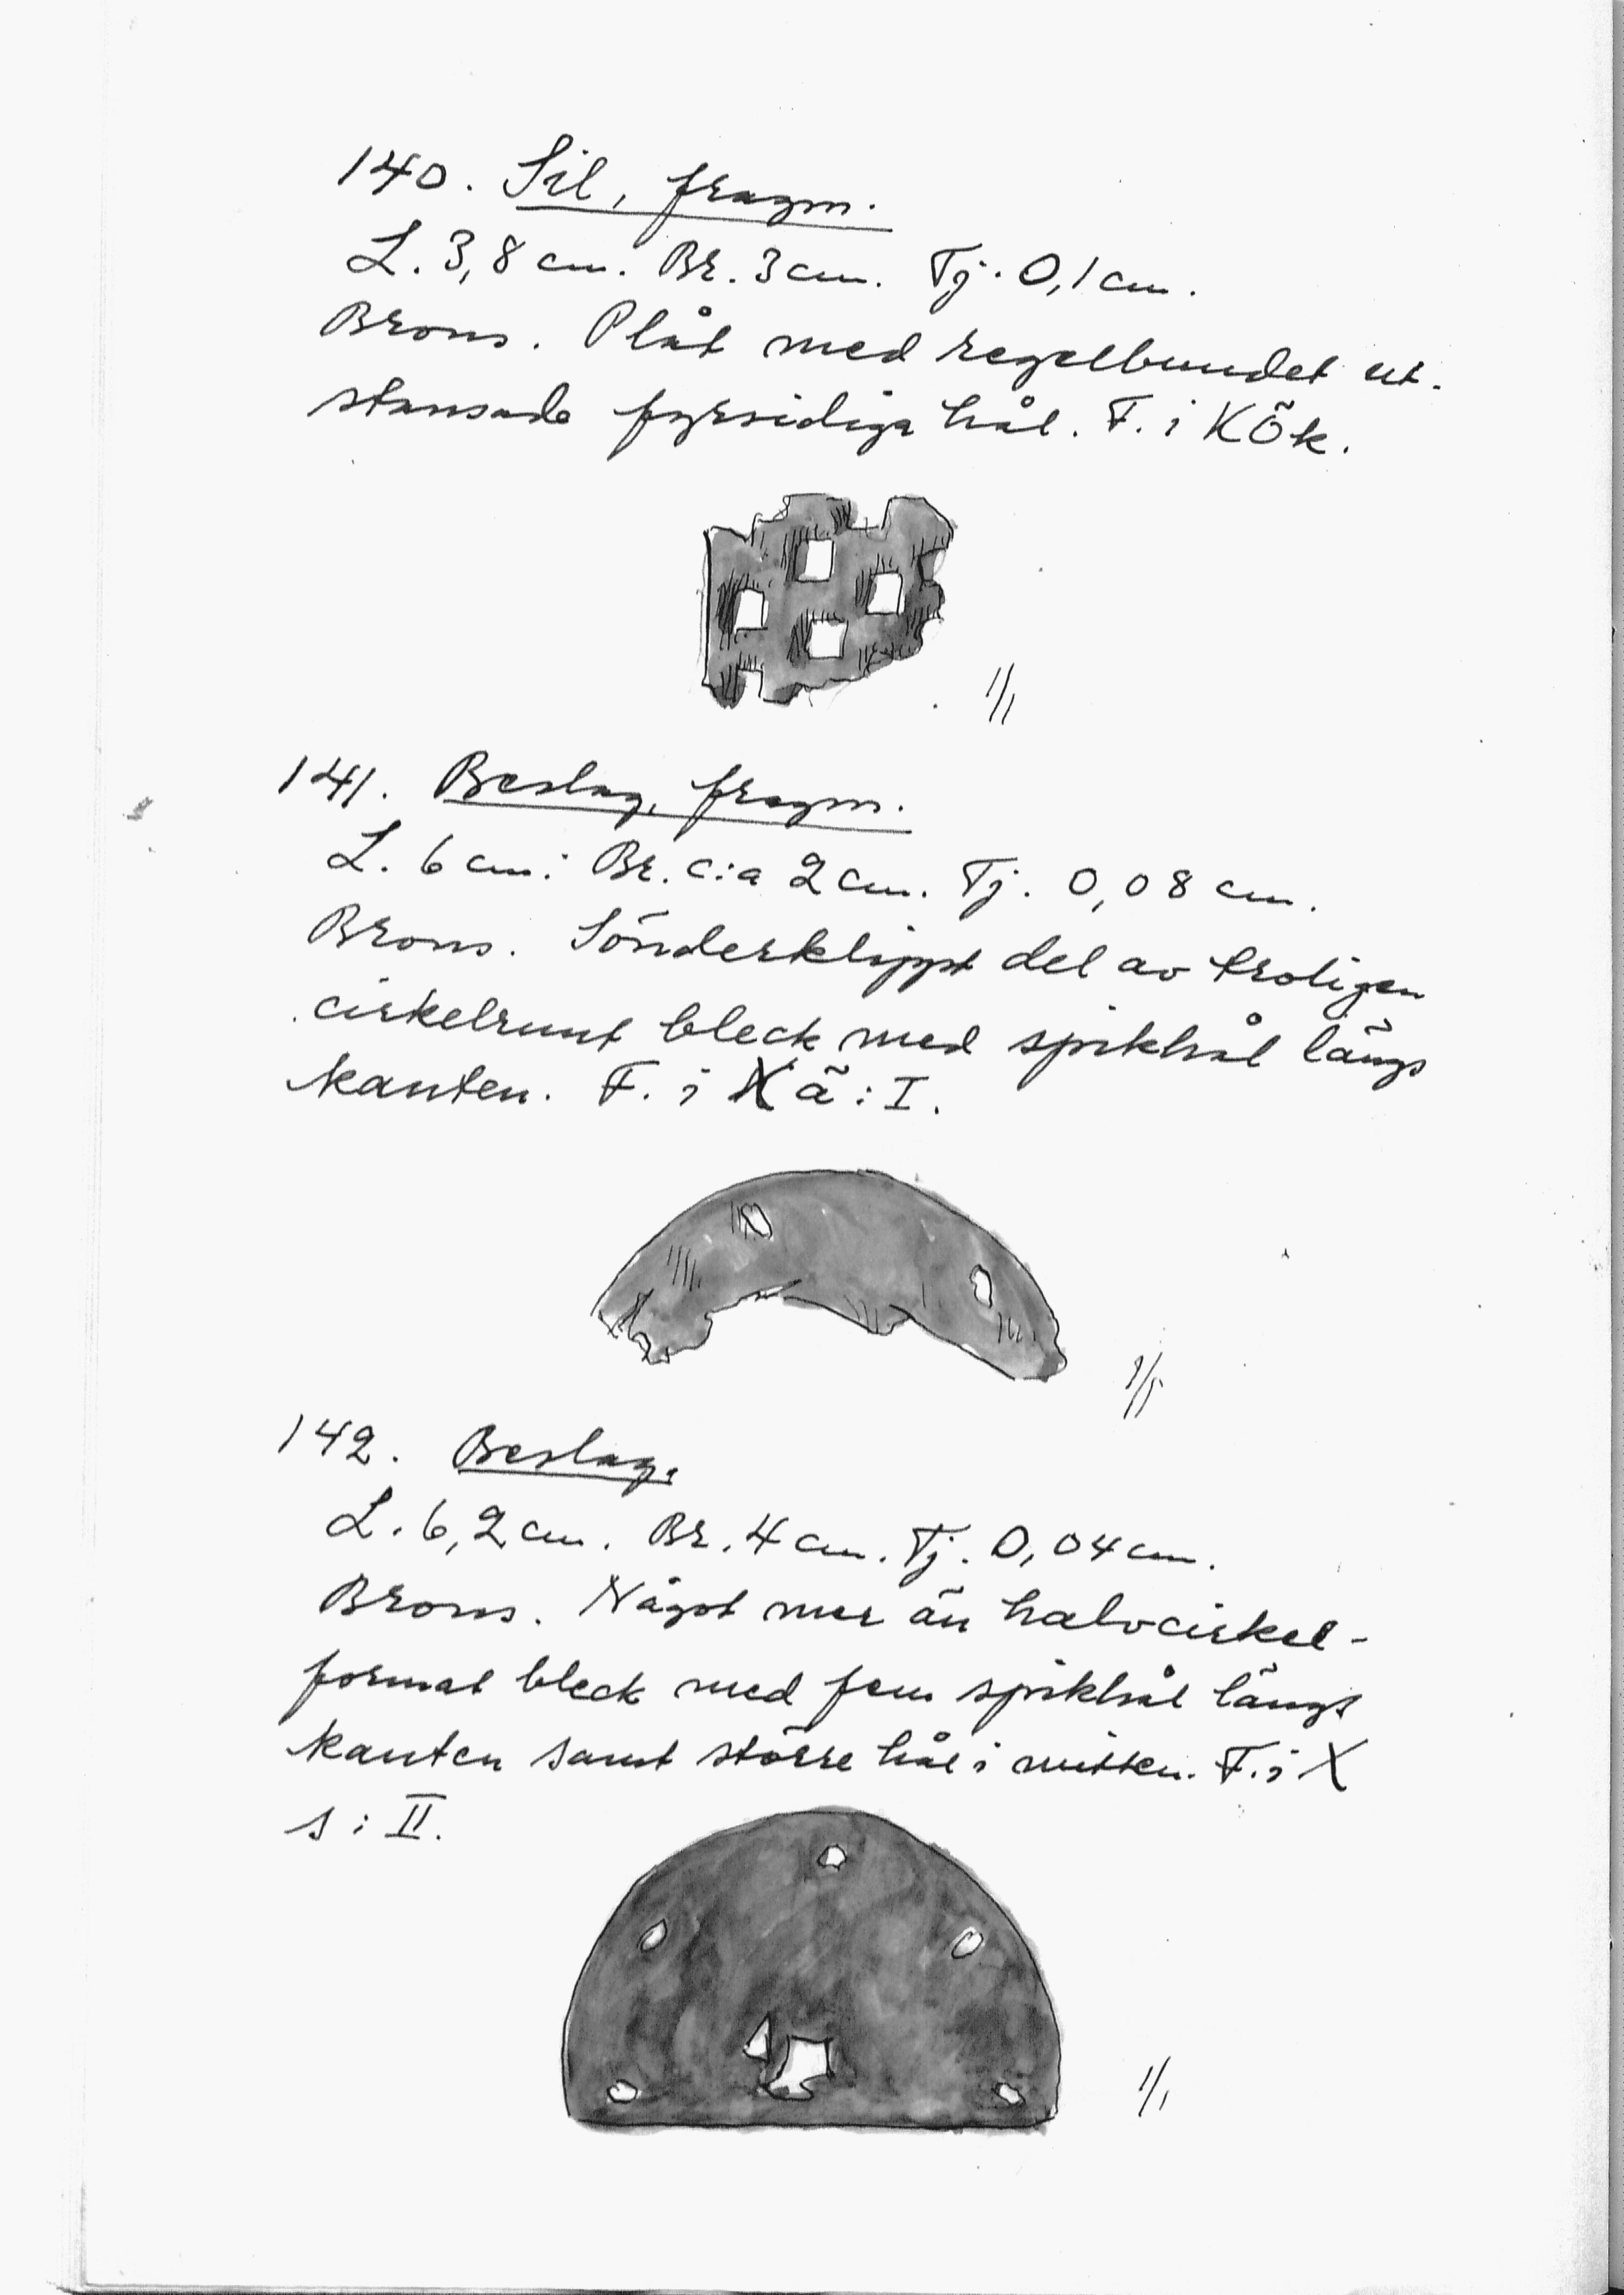 140. Sil, fragm.
L. 3,8 cm. Br. 3 cm. Tj. 0,1 cm.
Brons. Plåt med regelbundet ut-
stansade fyrsidiga hål. F. i KÖk.
1/1
141. Beslag, fragm.
L. 6 cm. Br. c:a 2 cm. Tj. 0,08 cm.
Brons. Sönderklippt del av troligen
cirkelrunt bleck med spikhål längs
kanten. F. i X ä: I.
1/1
142. Beslag.
L. 6,2 cm. Br. 4 cm. Tj. 0,04 cm.
Brons. Något mer än halvcirkel-
format bleck med fem spikhål längs
kanten samt större hål i mitten. F. i X
s: II.
1/1